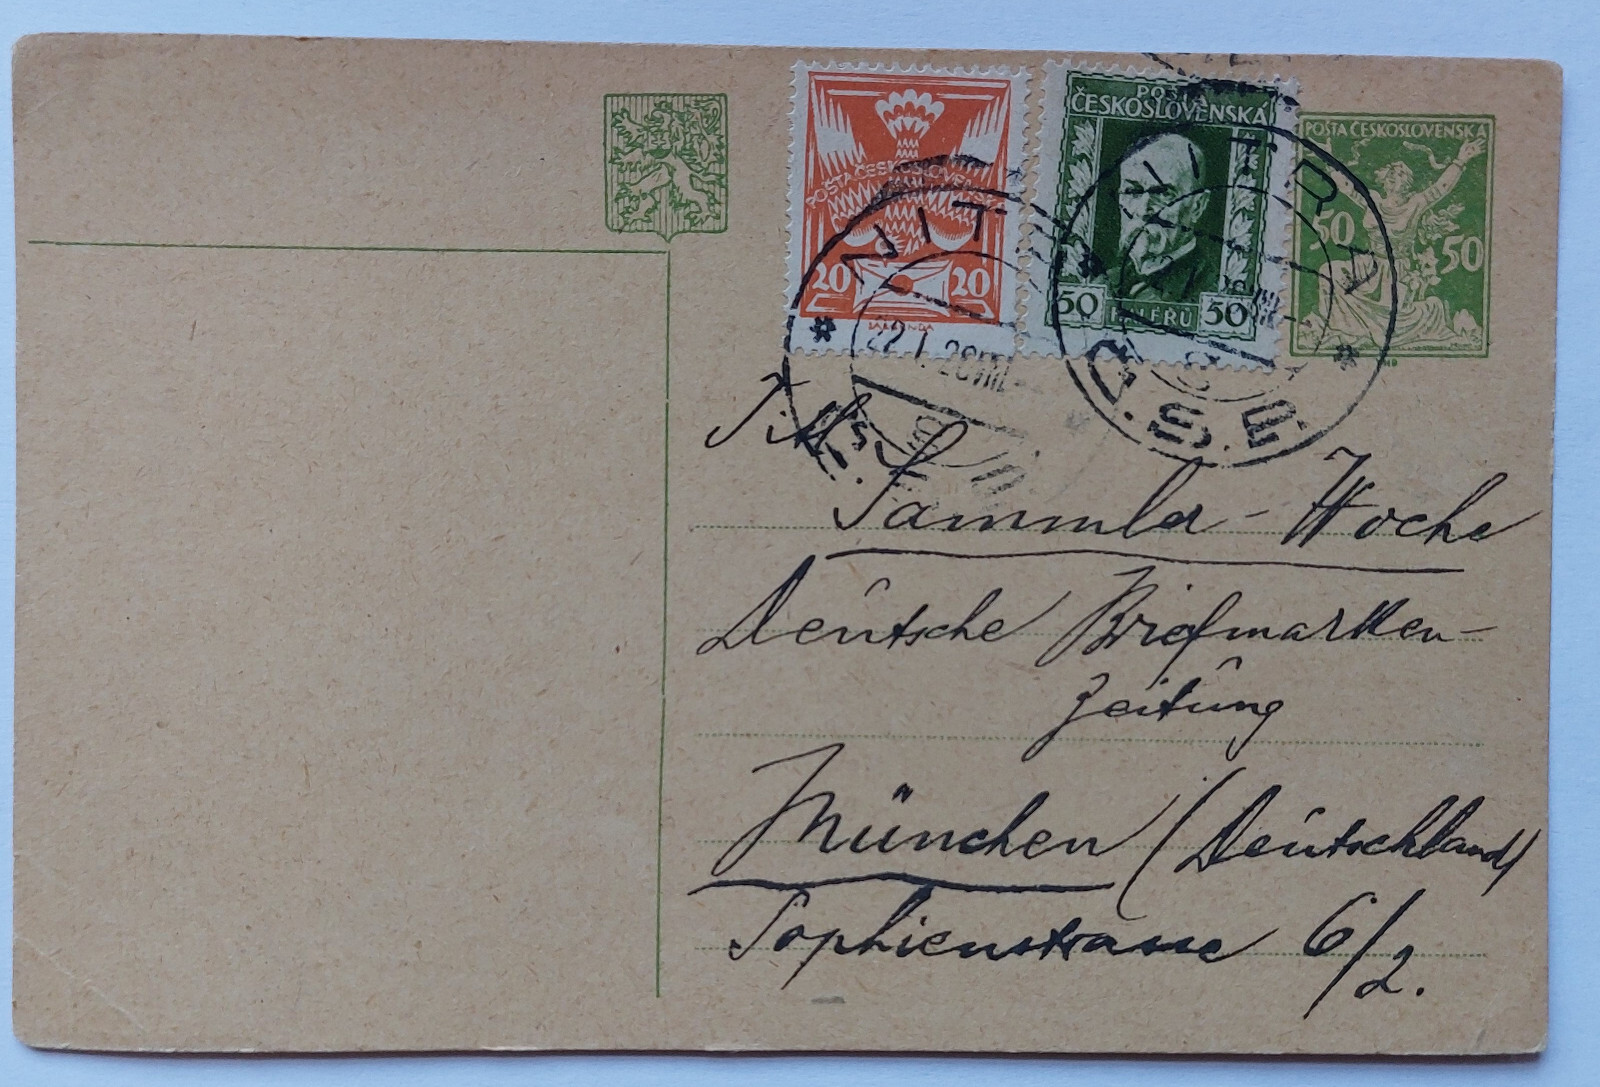 POŠTA ČESKOSLOVENSKÁ
20 20
POŠTA
ČESKOSLOVENSKÁ
50 HALÉŘŮ 50
POŠTA ČESKOSLOVENSKÁ
50 50
NIT
22.I.28
NITRA
Č.S.
T. M.
Sammler-Woche
Deutsche Briefmarken-
Zeitung
München (Deutschland)
Sophienstrasse 6/2.